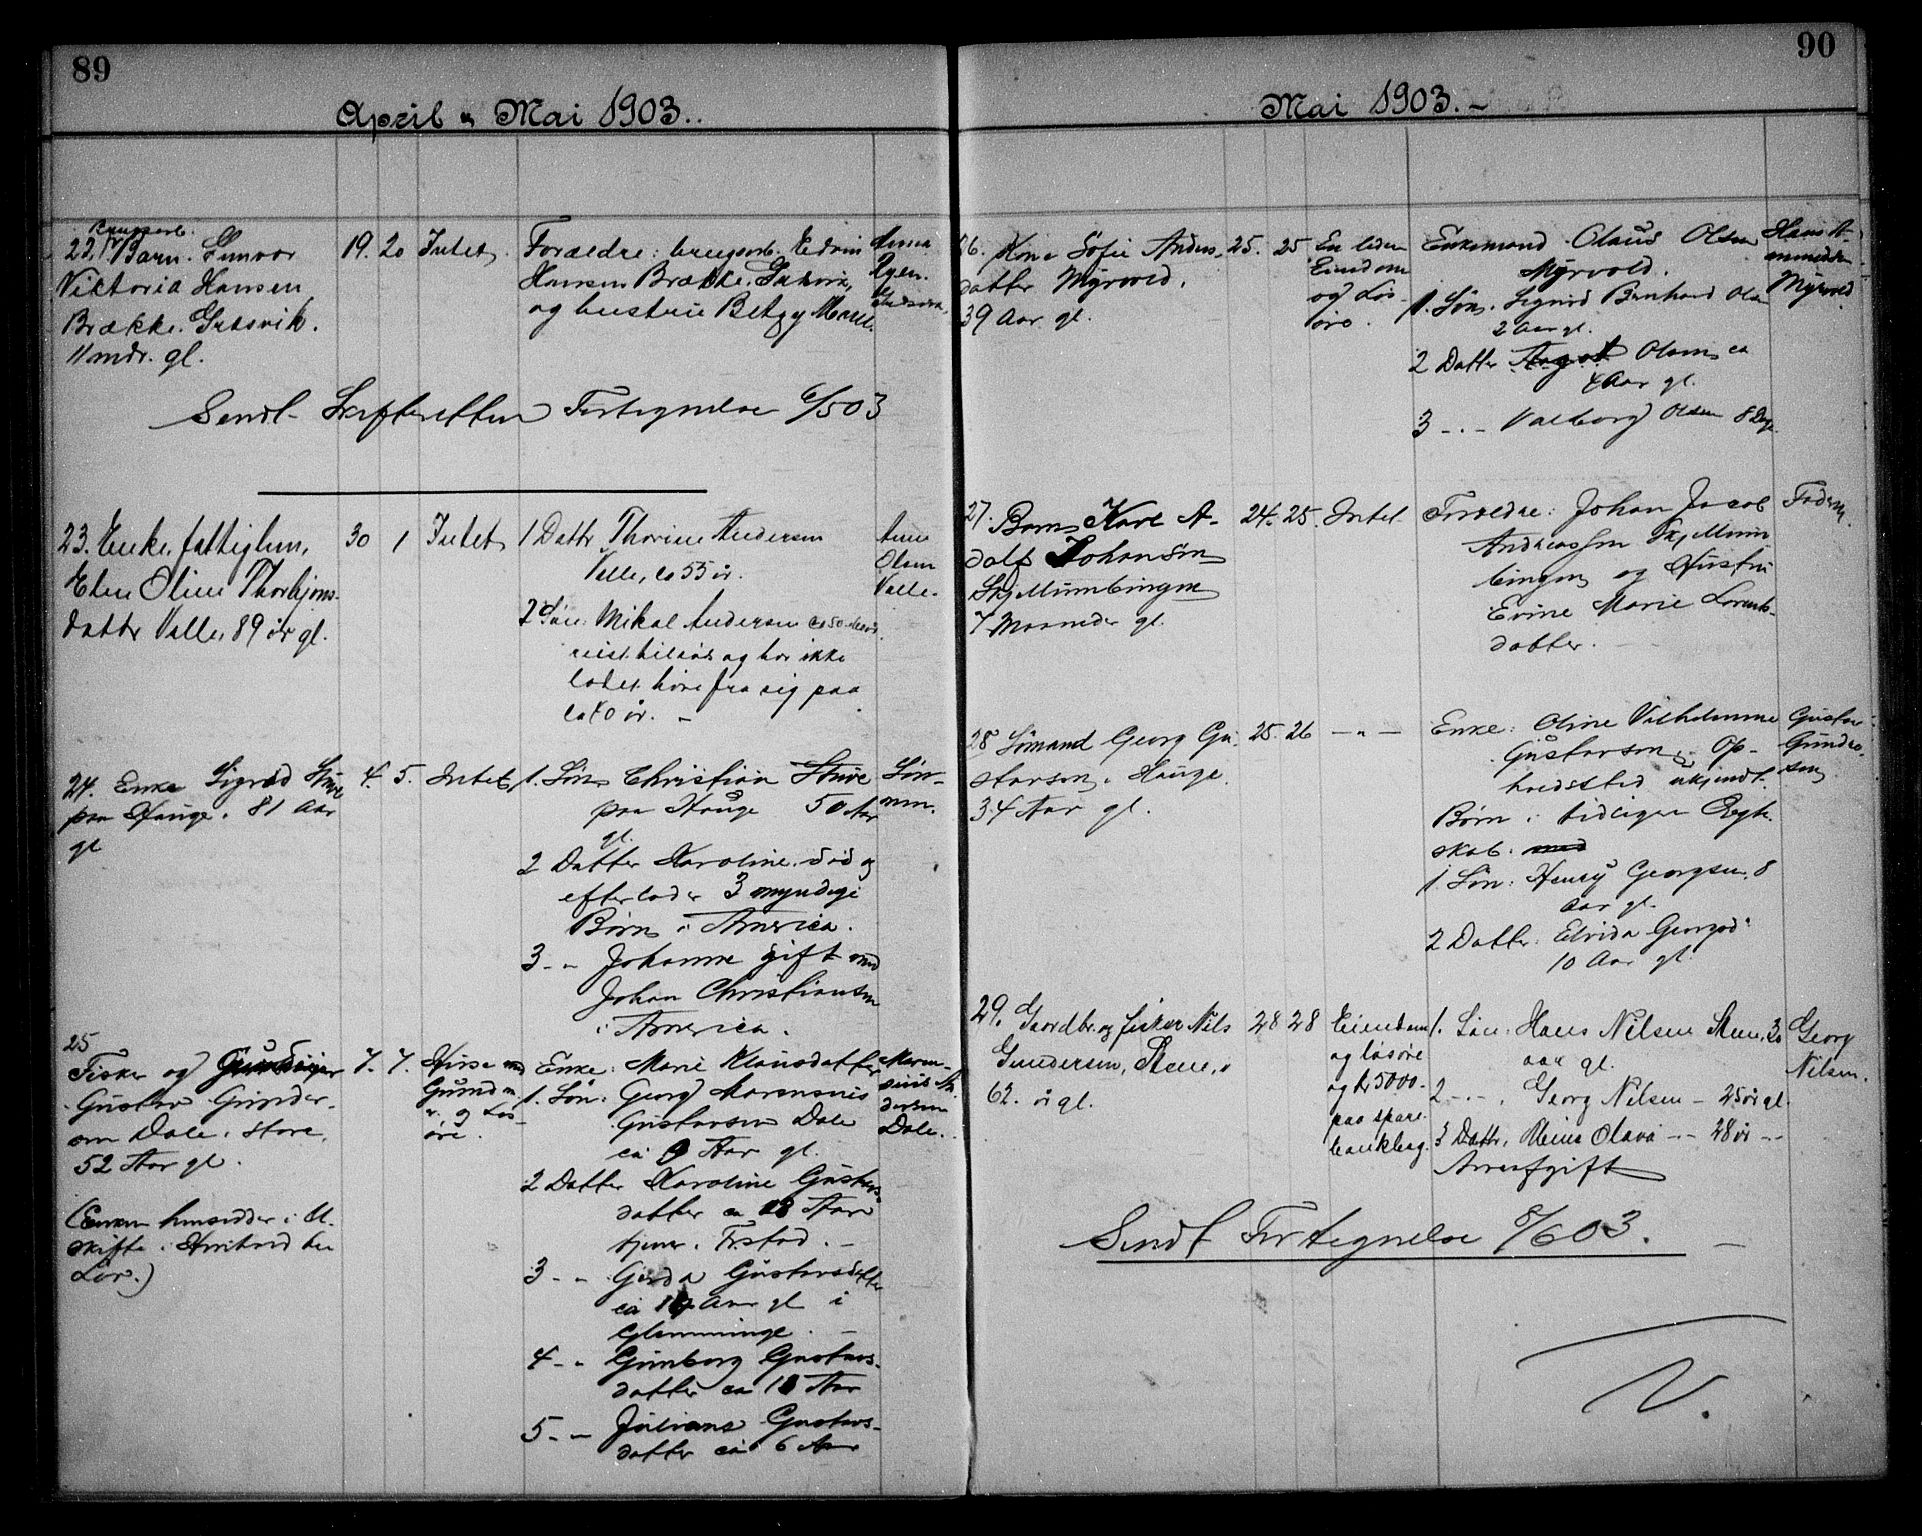 89
April & Mai 1903.
22. Barn Gunvor
Viktoria Hansen
Brække. Græsvik.
11 mdr. gl.
19. 20 Intet
Forældre: brugsarb. Edvin
Hansen Brække. Græsvik,
og hustru Betzy Marie.
Anna
Sendt Skifteretten Fortegnelse 6/5 03
23. Enke, fattiglem,
Elen Oline Thorbjøns-
datter Valle, 89 år gl.
30 1 Intet
1 Datter Thorine Andersen
Valle, ca 55 år.
2 Søn: Mikal Andersen ca 50
reist tilsøs og har ikke
ladet høre fra sig paa
år. -
Olsen
Valle.
24. Enke Sigrid Stuve
paa Hauge. 81 Aar
gl
4. 5. Intet
1. Søn Christian Stuve
paa Hauge 50 Aar
gl.
2 Datter Karoline død og
efterlader 3 myndige
Børn i America.
3 - " Johanne gift med
Johan Christiansen
i America.
Søn-
nen.
25
Fisker og Gaardeier
Gustav Gunder-
sen Dale. Store,
52 Aar gl.
(Enken hensidder i U-
skifte i Henhold til
Lov.)
7. 7. Huse med
Grund
og Løs-
øre.
Enke: Marie Klausdatter
1. Søn: Georg Marensius
Gustavsen Dale
ca 9 Aar gl.
2 Datter Karoline Gustavs-
datter ca 18 Aar
tjener i Fr.stad. -
3 - " Gerda Gustavsdatter
ca 14 Aar gl i
Glemminge. -
4 - " Gunborg Gustavs-
datter ca 11 Aar
5 - " Juliane Gustavs-
datter ca 6 Aar
Maren-
sius An-
dersen
Dale.
90
Mai 1903. -
26. Kone Sofie Anders-
datter Myrvold.
39 Aar gl.
25. 25 En liden
Eiendom
og Løs-
øre.
Enkemand Olaus Olsen
Myrvold.
1. Søn. Sigurd Bernhard Olsen
2 Aar gl.
2 Datter Aagot Olsen ca
4 Aar gl.
3 - " - Valborg Olsen 8 Dage
Hans A-
Myrvold
27. Barn Karl A-
dolf Johansen
Skjellumbingen
7 Maaneder gl.
24. 25. Intet
Forældre: Johan Jacob
Andreassen Skjellum
bingen og Hustru
Evine Marie Lorents-
datter.
Faderen.
28 Sømand Georg Gu-
stavsen, Hauge.
34 Aar gl.
25. 26 - " -
Enke: Oline Vilhelmine
Gustavsen. Op-
holdssted ukjendt.
Børn i tidligere Ægte-
skab. med
1. Søn: Henry Georgsen, 8
Aar gl.
2 Datter: Elvida Georgsd.
10 Aar gl.
Gustav
Gunder-
sen
29. Gaardbr. og fisker Nils
Gundersen, Stene,
62. år gl.
28 28 Eiendom
og løsøre
og kr 5000.
paa spare-
bankbog.
1. Søn: Hans Nilsen Stene, 30
aar gl.
2 - " - Georg Nilsen - 25 år gl.
3 Datter, Olava - - 28 år - -
Arveafgift
Georg
Nilsen.
Sendt Fortegnelse 8/6 03. -